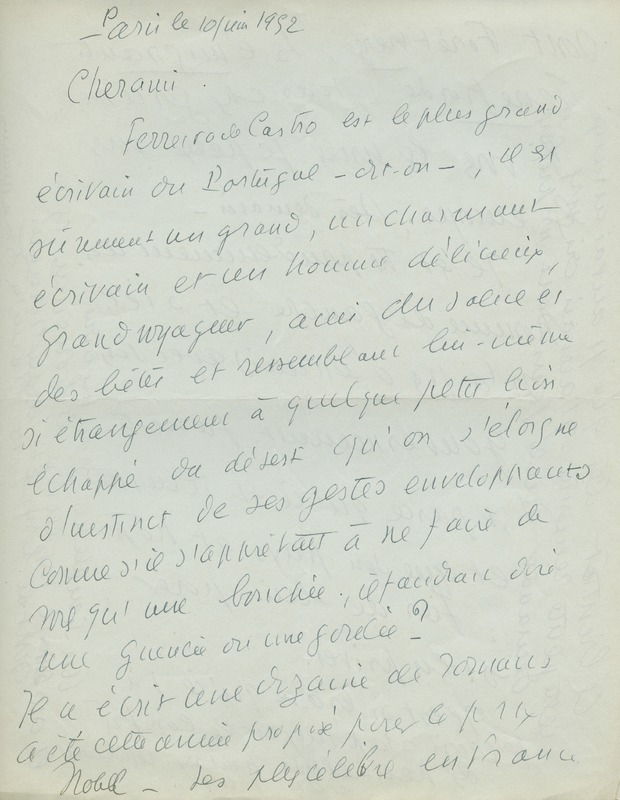 Paris le 10 juin 1952
Cher ami.
Ferreira de Castro est le plus grand
écrivain du Portugal - dit-on -, il est
sûrement un grand, un charmant
écrivain et un homme délicieux,
grand voyageur, ami du soleil et
des bêtes et ressemblant lui-même
si étrangement à quelque petit lion
échappé du désert qu'on s'éloigne
d'instinct de ses gestes enveloppants
comme s'il s'apprêtait à ne faire de
vous qu'une bouchée, il faudrait dire
une gueulée ou une goulée ?
Il a écrit une dizaine de romans
a été cette année proposé pour le prix
Nobel - Les plus célèbre en France